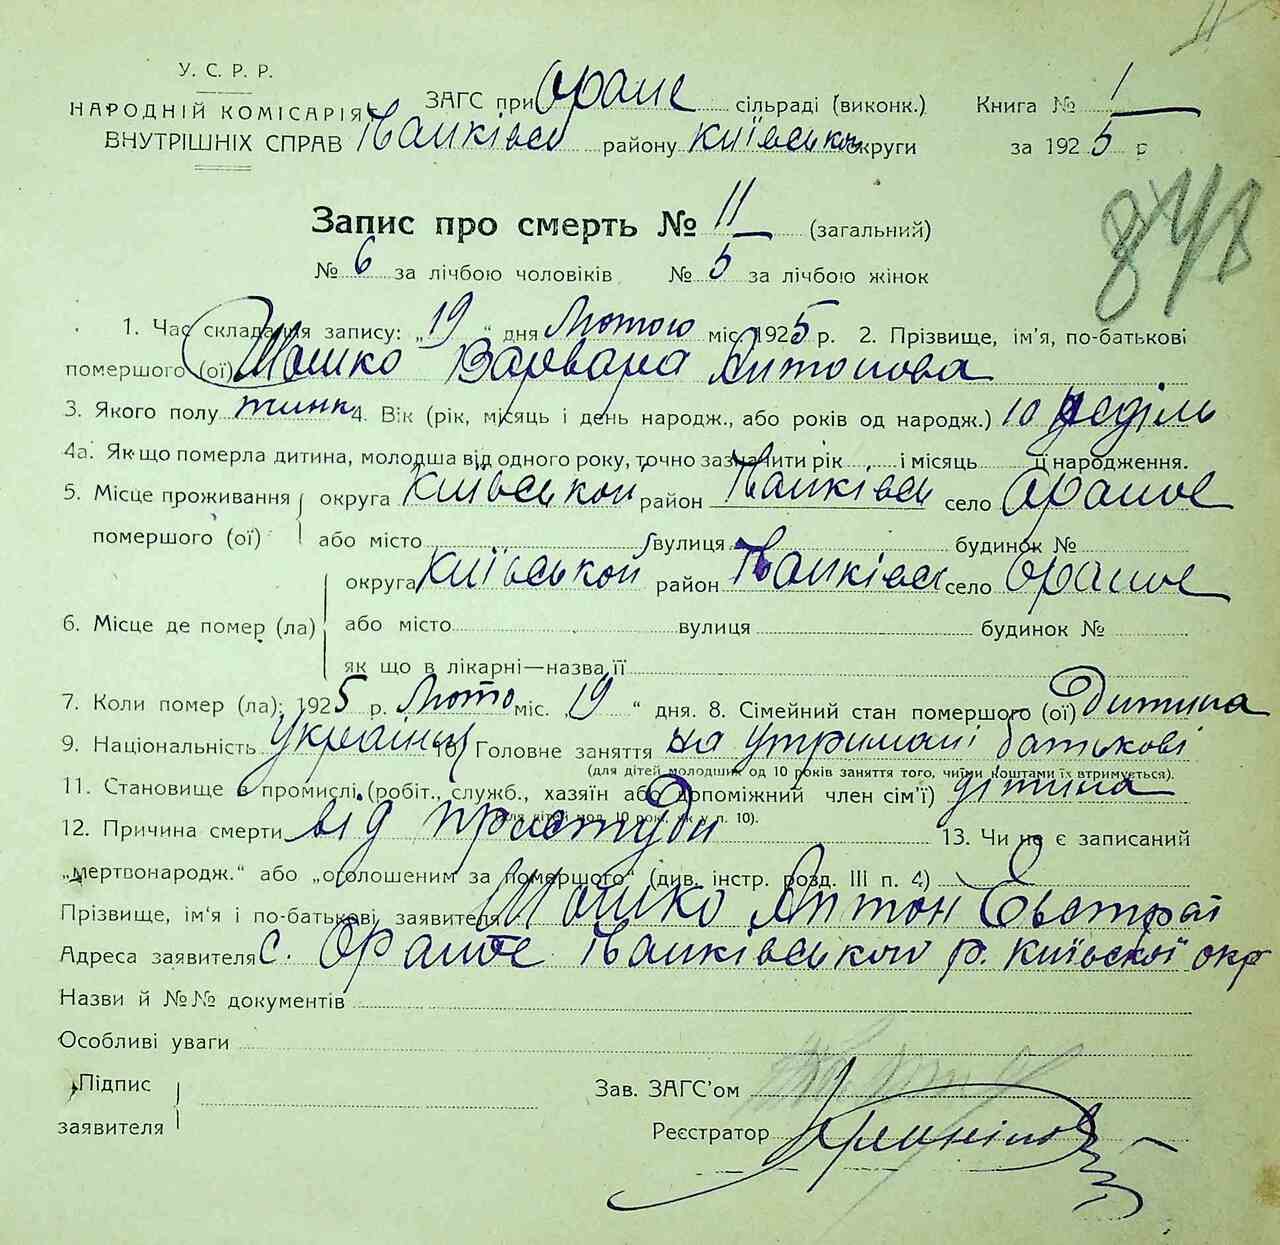 У. С. Р. Р.
НАРОДНІЙ КОМІСАРІЯТ
ВНУТРІШНІХ СПРАВ
ЗАГС при Оране сільраді (виконк.)
Іванківськ району Київської округи
Книга № 1
за 1925 р
Запис про смерть № 11 (загальний)
№ 6 за лічбою чоловіків № 5 за лічбою жінок
848
1. Час складання запису: „19“ дня Лютого міс. 1925 р. 2. Прізвище, ім'я, по-батькові
помершого (ої) Шошко Варвара Антонова
3. Якого полу жінк 4. Вік (рік, місяць і день народж., або років од народж.) 10 неділь
4а. Якщо померла дитина, молодша від одного року, точно зазначити рік і місяць її народження.
5. Місце проживання округа Київської район Іванківськ село Ораное
помершого (ої) або місто вулиця будинок №
округа Київської район Іванківськ село Ораное
6. Місце де помер (ла) або місто вулиця будинок №
як що в лікарні—назва її
7. Коли помер (ла): 1925 р. Люто міс. „19“ дня. 8. Сімейний стан помершого (ої) Дитина
9. Національність Українка 10. Головне заняття на утримані батькові
(для дітей молодших од 10 років заняття того, чиїми коштами їх втримується).
11. Становище в промислі (робіт., служб., хазяїн або допоміжний член сім'ї) дітина
(для дітей мол. 10 рок. як у п. 10).
12. Причина смерти від простуди 13. Чи не є записаний
„мертвонародж.“ або „оголошеним за помершого“ (див. інстр. розд. III п. 4)
Прізвище, ім'я і по-батькові заявителя Шошко Антон Евстрат
Адреса заявителя с. Ораное Іванківської р. Київської окр
Назви й №№ документів
Особливі уваги
Підпис
заявителя
Зав. ЗАГС'ом
Реєстратор